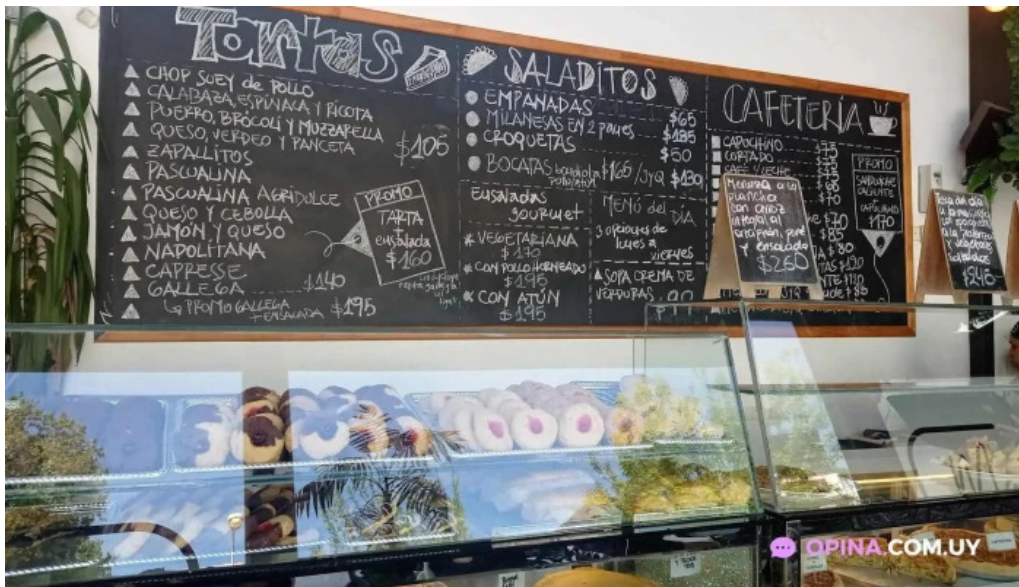 Tartas
CHOP SUEY de POLLO
CALABAZA, ESPINACA Y RICOTA
PUERRO, BRÓCOLI Y MUZZARELLA
QUESO, VERDEO Y PANCETA
$105
ZAPALLITOS
PASCUALINA
PASCUALINA AGRIDULCE
QUESO Y CEBOLLA
JAMÓN Y QUESO
NAPOLITANA
CAPRESSE
GALLEGA $140
PROMO GALLEGA
+ ENSALADA $195
PROMO
TARTA
+
ensalada
$160
SALADITOS
EMPANADAS $65
MILANESAS EN 2 panes $185
CROQUETAS $50
BOCATAS $165 / JYQ $130
Ensaladas
gourmet
VEGETARIANA
$170
CON POLLO HORNEADO
$195
CON ATÚN
$195
MENÚ del DÍA
3 opciones de
lunes a
viernes
SOPA CREMA DE
VERDURAS
CAFETERÍA
CAPUCHINO
CORTADO
CAFÉ
PROMO
SANDWICHE
CALIENTE
+
CAPUCHINO
$170
$70
$85
Merluza a la
plancha
con arroz
integral al
y ensalada
$260
$240
OPINA.COM.UY